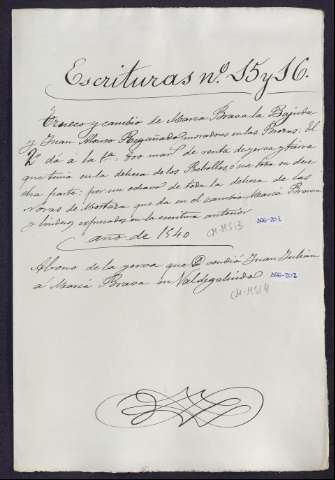 Escrituras nº 15 y 16.
Trueco y cambio de María Brava la Bajuda
y Juan Marco Regañado moradores en las Brozas. El
2º da a la 1ª tres mil de renta de yerva y tierra
que tenia en la dehesa de los Rebollos ó en otra en dere
cha parte; por un ochavo de toda la dehesa de las
de que da en el cambio María Brava
y lindes espresados en la escritura anterior
año de 1540
CH-M 513
Abono de la yerva que vendió Juan Julian
á María Brava en Valdegalinda
CH-M 514